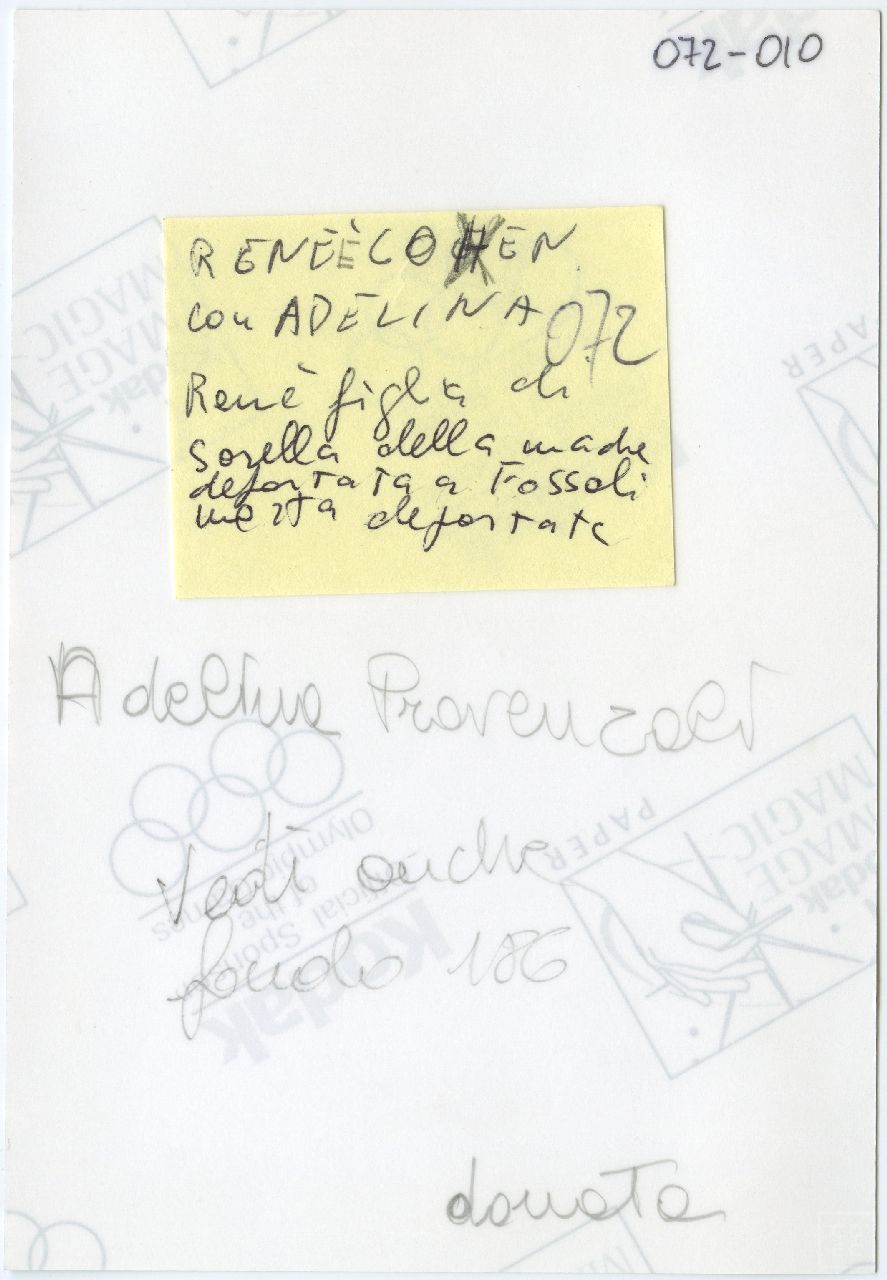 072-010
RENEÈ COEN
con ADELINA
072
Renè figlia di
sorella della madre
deportata a Fossoli
deportata
Adelina Provenzali
Vedi anche
fondo 186
donata
Kodak
Official Sponsor
of the
Olympic Games
Kodak
IMAGE
MAGIC
PAPER
Kodak
IMAGE
MAGIC
PAPER